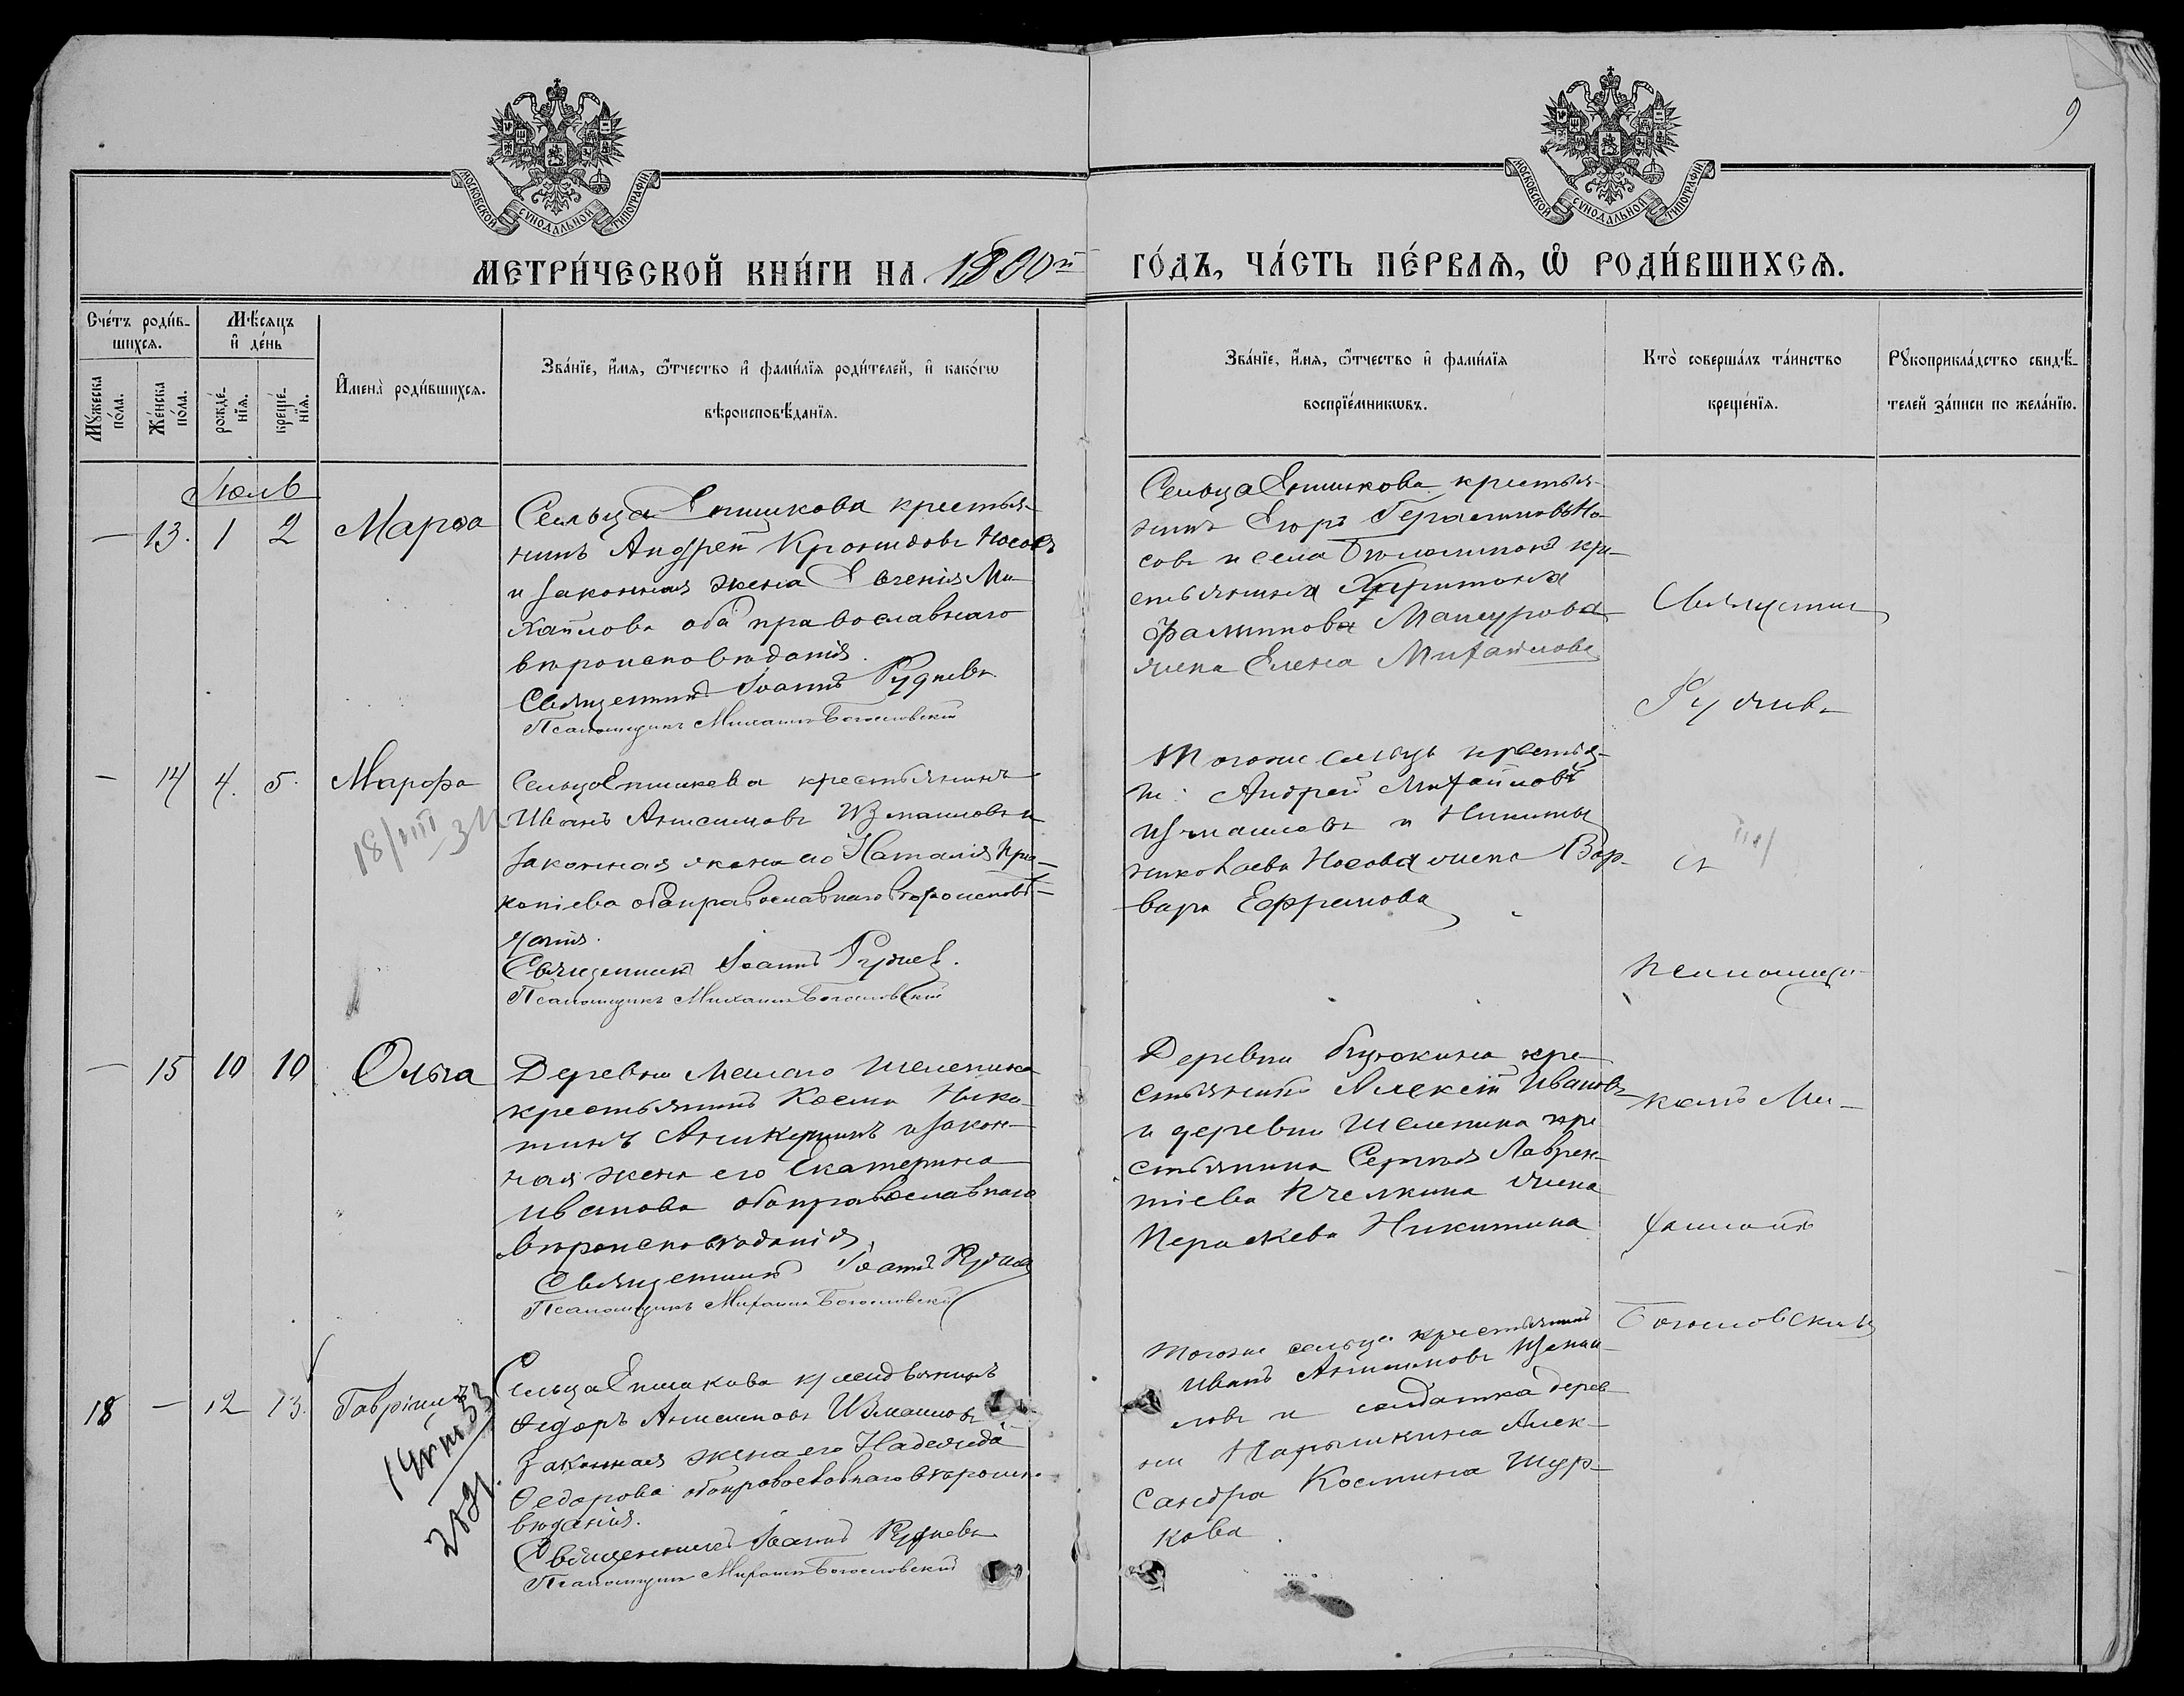 9
МОСКОВСКОЙ СѴНОДАЛЬНОЙ ТИПОГРАФІИ
МОСКОВСКОЙ СѴНОДАЛЬНОЙ ТИПОГРАФІИ
МЕТРИ́ЧЕСКОЙ КНИ́ГИ НА
ГО́ДЪ, ЧА́СТЬ ПЕ́РВАЯ, Ѡ РОДИ́ВШИХСЯ.
Сче́тъ роди́в-
шихся.
Мѣ́сяцъ
и де́нь
Имена̀ роди́вшихся.
Зва́нїе, и́мя, ѻ҆́тчество и фами́лїя роди́телей, и како́гѡ
вѣроисповѣ́данїя.
Му́жеска
по́ла.
Же́нска
по́ла.
рожде́-
нїя.
креще́-
нїя.
Зва́нїе, и́мя, ѻ҆́тчество и фами́лїя
воспрїе́мникѡвъ.
Кто̀ соверша́лъ та́инство
креще́нїя.
Рꙋкоприкла́дство свидѣ́-
телей за́писи по жела́нїю.
Іюль
— 13. 1 2 Марѳа
Сельца Епишкова крестья-
нинъ Андрей Кронидовъ Носовъ
и законная жена Евгенія Ми-
хайлова оба православнаго
вѣроисповѣданія.
Священникъ Іоаннъ Рудневъ
Псаломщикъ Михаилъ Богословскій
Сельца Епишкова крестья-
нинъ Егоръ Герасимовъ Но-
совъ и села кре-
стьянина Харитона
Мансурова
жена Елена Михайлова
Священникъ
Рудневъ
— 14 4. 5. Марѳа
18/VIII
Сельца Епишкова крестьянинъ
Иванъ Анисимовъ Измаиловъ и
законная жена его Наталія Про-
копіева оба православнаго вѣроисповѣ-
данія.
Священникъ Іоаннъ Рудневъ.
Псаломщикъ Михаилъ Богословскій
Тогоже сельца крестья-
н: Андрей Михайловъ
Измаиловъ и Никиты
Николаева Носова жена Вар-
вара Ефремова
съ
псаломщи-
— 15 10 10 Ольга
Деревни Малаго Шелепина
крестьянинъ Косма Ники-
тинъ и закон-
ная жена его Екатерина
Иванова оба православнаго
вѣроисповѣданія.
Священникъ Іоаннъ Рудневъ
Псаломщикъ Михаилъ Богословскій
Деревни кре-
стьянинъ Алексѣй Ивановъ
и деревни Шелепина кре-
стьянина Сергія Лаврен-
тіева Пчелкина жена
Параскева Никитина
комъ Ми-
хаиломъ
Богословскимъ
18 — 12 13. Гавріилъ
Сельца Епишкова крестьянинъ
Ѳедоръ Анисимовъ Измаиловъ
законная жена его Надежда
Ѳедорова оба православнаго вѣроиспо-
вѣданія.
Священникъ Іоаннъ Рудневъ
Псаломщикъ Михаилъ Богословскій
Тогоже сельца крестьянинъ
Иванъ Анисимовъ Измаи-
ловъ и солдатка дерев-
ни Нарышкина Алек-
сандра Космина Шур-
кова